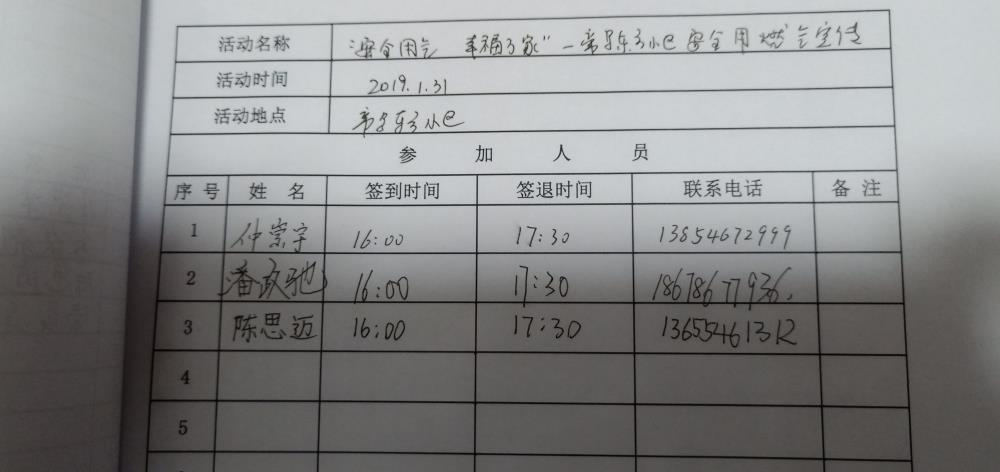 活动名称 "安全用气 幸福万家"—帝景东方小区安全用燃气宣传
活动时间 2019.1.31
活动地点 帝景东方小区
参加人员
序号 姓名 签到时间 签退时间 联系电话 备注
1 仲崇宇 16:00 17:30 13854672999
2 潘政驰 16:00 17:30 18678677936.
3 陈思迈 16:00 17:30 13655461312
4
5